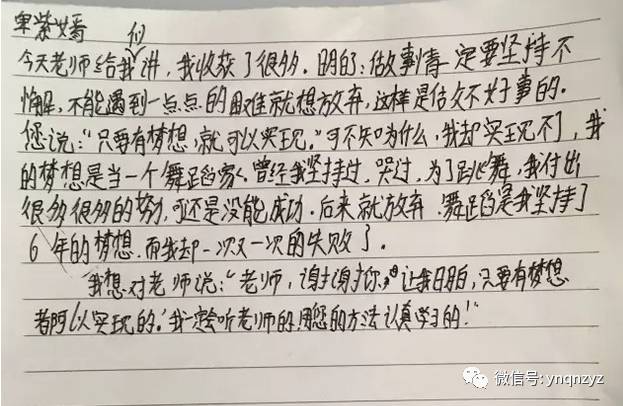 卑紫嫣
今天老师给我们讲,我收获了很多.明白:做事情一定要坚持不
懈,不能遇到一点点的困难就想放弃,这样是做不好事的.
您说:“只要有梦想,就可以实现。”可不知为什么,我却实现不了,我
的梦想是当一个舞蹈家.曾经我坚持过,哭过,为了跳舞,我付出
很多很多的努力,可还是没能成功.后来就放弃.舞蹈是我坚持了
6年的梦想.而我却一次又一次的失败了.
我想对老师说:“老师,谢谢你,让我明白,只要有梦想
都可以实现的.我一定会听老师的,用您的方法认真学习的!”
微信号:ynqnzyz